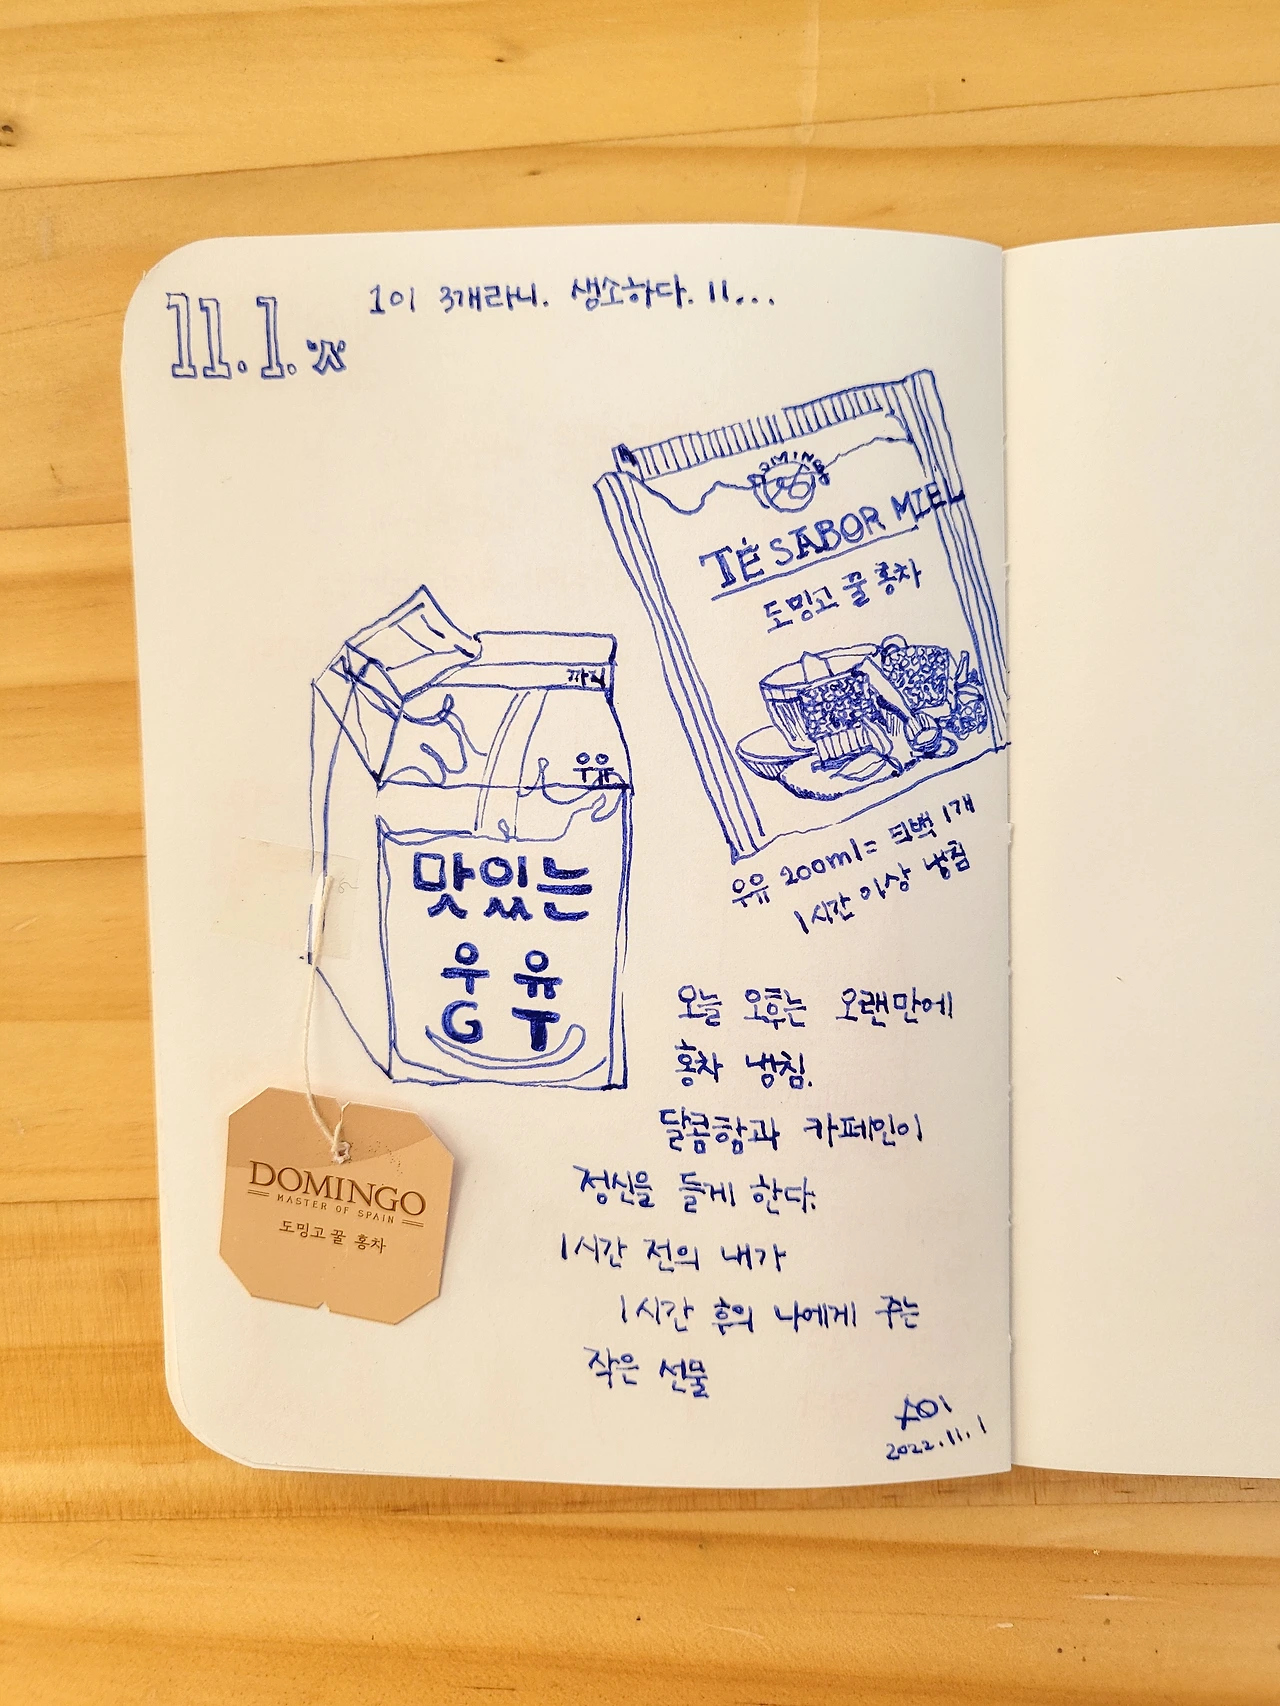 11.1.
1이 3개라니. 생소하다. 11...
DOMINGO
TÉ SABOR MIEL
도밍고 꿀 홍차
우유
맛있는
우유
GT
우유 200ml = 티백 1개
1시간 이상 냉침
오늘 오후는 오랜만에
홍차 냉침.
달콤함과 카페인이
정신을 들게 한다.
1시간 전의 내가
1시간 후의 나에게 주는
작은 선물
2022.11.1
DOMINGO
MASTER OF SPAIN
도밍고 꿀 홍차